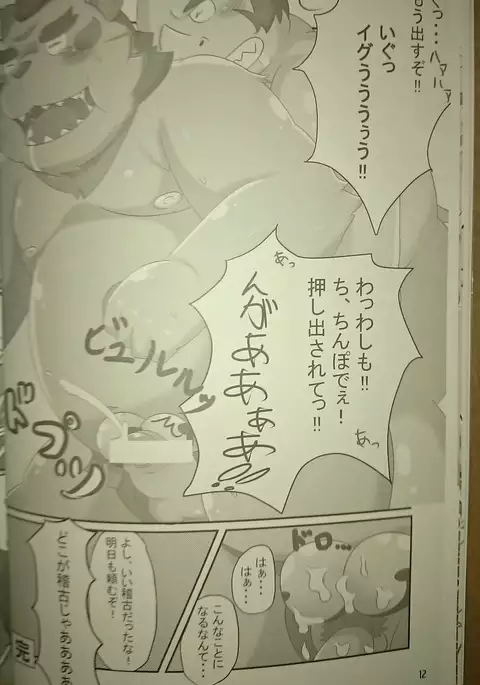 くっ・・・
う出すぞ!!
ハァハァ
いぐっ
イグぅぅぅぅぅ!!
あっ
わっわしも!!
ち、ちんぽでぇ!
押し出されてっ!!
あっ
んがああぁあ!!
ビュルルルッ
ドプッ
ドロ…
はぁ・・・
はぁ・・・
こんなことに
なるなんて・・・
よし、いい稽古だったな!
明日も頼むぞ!
どこが稽古じゃああああ
完
12